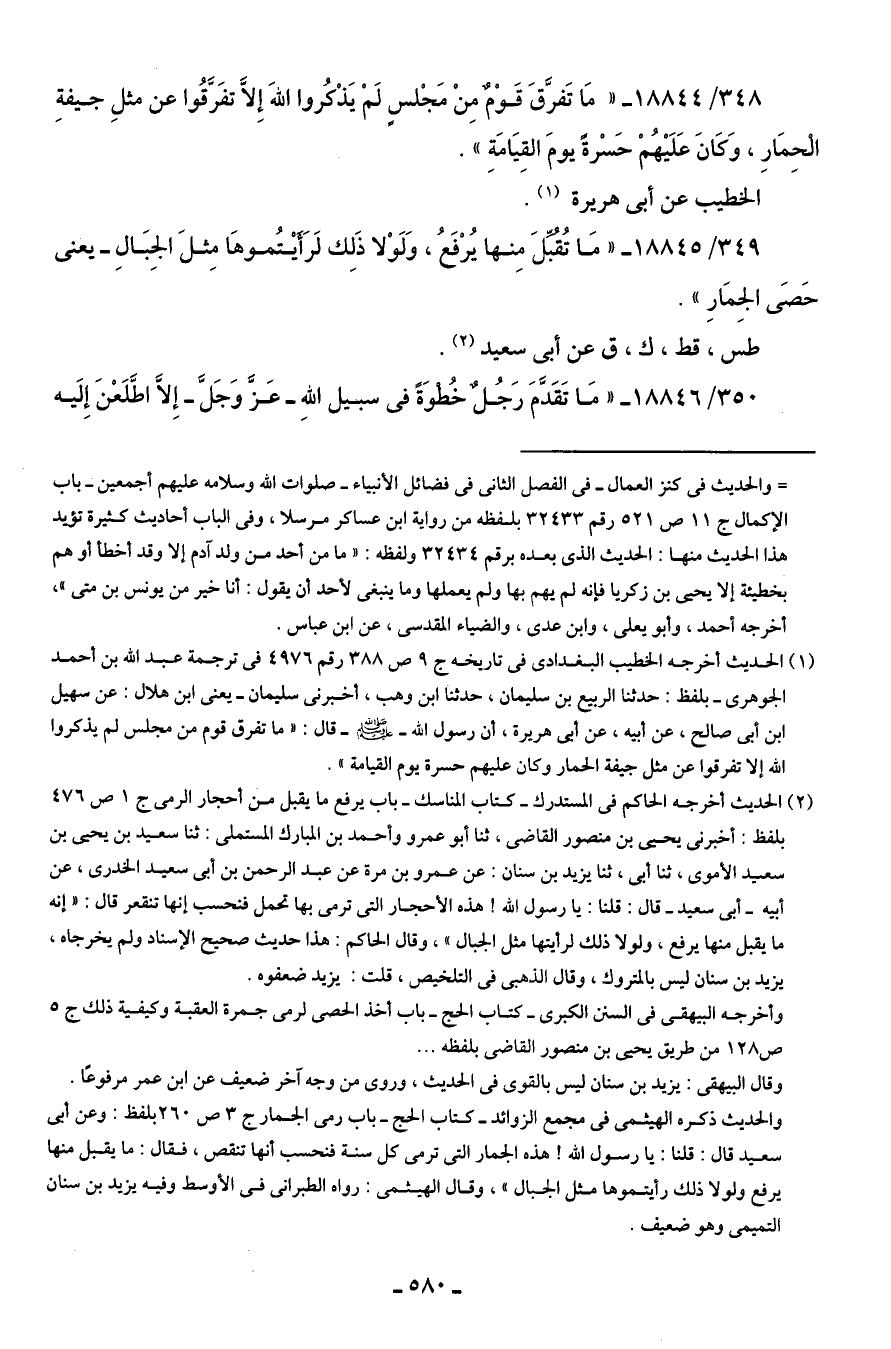 ٣٤٨/ ١٨٨٤٤ـ « مَا تَفرَّقَ قَـوْمٌ مِنْ مَجْلسٍ لَمْ يَذْكُروا اللهَ إِلاَّ تَفرَّقُوا عن مثلِ جـيفةِ
الْحِمَارِ ، وَكَانَ عَلَيْهُمْ حَسْرةً يومَ القِيَامَةِ » .
الخطيب عن أبى هريرة (١) .
٣٤٩/ ١٨٨٤٥ـ « مَـا تُقُبِّلَ مِنـها يُرْفَعُ ، وَلَوْلا ذَلِك لَرَأَيْـتُموهَا مِثـلَ الجِبَـالِ ـ يعنى
حَصَى الجِمَارِ » .
طس ، قط ، ك ، ق عن أبى سعيد (٢) .
٣٥٠/ ١٨٨٤٦ـ « مَـا تَقَدَّمَ رَجُـلٌ خُطْوَةً فى سبـيل اللهِ ـ عَـزَّ وَجَلَّ ـ إِلاَّ اطَّلَعْنَ إِلَيـه
= والحديث فى كنز العمال ـ فى الفصل الثانى فى فضائل الأنبياء ـ صلوات الله وسلامه عليهم أجمعين ـ باب
الإكمال ج ١١ ص ٥٢١ رقم ٣٢٤٣٣ بلـفظه من رواية ابن عساكر مـرسلا ، وفى الباب أحاديث كـثيرة تؤيد
هذا الحديث منهـا : الحديث الذى بعـده برقم ٣٢٤٣٤ ولفظه : « ما من أحد مـن ولد آدم إلا وقد أخطأ أو هم
بخطيئة إلا يحيى بن زكريا فإنه لم يهم بها ولم يعملها وما ينبغى لأحد أن يقول : أنا خير من يونس بن متى »،
أخرجه أحمد ، وأبو يعلى ، وابن عدى ، والضياء المقدسى ، عن ابن عباس .
(١) الحـديث أخرجـه الخطيب البـغدادى فى تاريخـه ج ٩ ص ٣٨٨ رقم ٤٩٧٦ فى ترجمة عبـد الله بن أحمـد
الجوهرى ـ بلفظ : حدثنا الربيع بن سليمان ، حدثنا ابن وهب ، أخـبرنى سليمان ـ يعنى ابن هلال : عن سهيل
ابن أبى صالح ، عن أبيه ، عن أبى هريرة ، أن رسول الله ـ ﷺ ـ قال : « ما تفرق قوم من مجلس لم يذكروا
الله إلا تفرقوا عن مثل جيفة الحمار وكان عليهم حسرة يوم القيامة » .
(٢) الحديث أخرجـه الحاكم فى المستدرك ـ كتاب المناسك ـ باب يرفع ما يقبل مـن أحجار الرمى ج ١ ص ٤٧٦
بلفظ : أخبرنى يحـيى بن منصور القاضى ، ثنا أبو عمرو وأحـمد بن المبارك المستملى : ثنا سعيد بن يحيى بن
سعيد الأموى ، ثنا أبى ، ثنا يزيد بن سنان : عن عـمرو بن مرة عن عبد الرحمن بن أبى سعيـد الخدرى ، عن
أبيه ـ أبى سعيد ـ قال : قلنا : يا رسول الله ! هذه الأحجـار التى ترمى بها تحمل فنحسب إنها تنقعر قال : « إنه
ما يقبل منها يرفع ، ولولا ذلك لرأيتها مثل الجبال » ، وقال الحاكم : هذا حديث صحيح الإسناد ولم يخرجاه ،
يزيد بن سنان ليس بالمتروك ، وقال الذهبى فى التلخيص ، قلت : يزيد ضعفوه .
وأخرجـه البيهقـى فى السنن الكبرى ـ كـتاب الحج ـ باب أخذ الحصى لرمى جـمرة العقبـة وكيفـية ذلك ج ٥
ص١٢٨ من طريق يحيى بن منصور القاضى بلفظه ...
وقال البيهقى : يزيد بن سنان ليس بالقوى فى الحديث ، وروى من وجه آخر ضعيف عن ابن عمر مرفوعًا .
والحديث ذكـره الهيثـمى فى مجمع الزوائد ـ كـتاب الحج ـ باب رمى الجـمار ج ٣ ص ٢٦٠بلفظ : وعن أبى
سعـيد قال : قلنا : يا رسـول الله ! هذه الجمار التى ترمى كل سنـة فنحسب أنها تنقص ، فـقال : ما يقبـل منها
يرفع ولولا ذلك رأيتـموها مـثل الجبـال » ، وقـال الهيـثـمى : رواه الطبرانى فـى الأوسط وفـيه يزيد بن سنان
التميمى وهو ضعيف .
ـ ٥٨٠ ـ